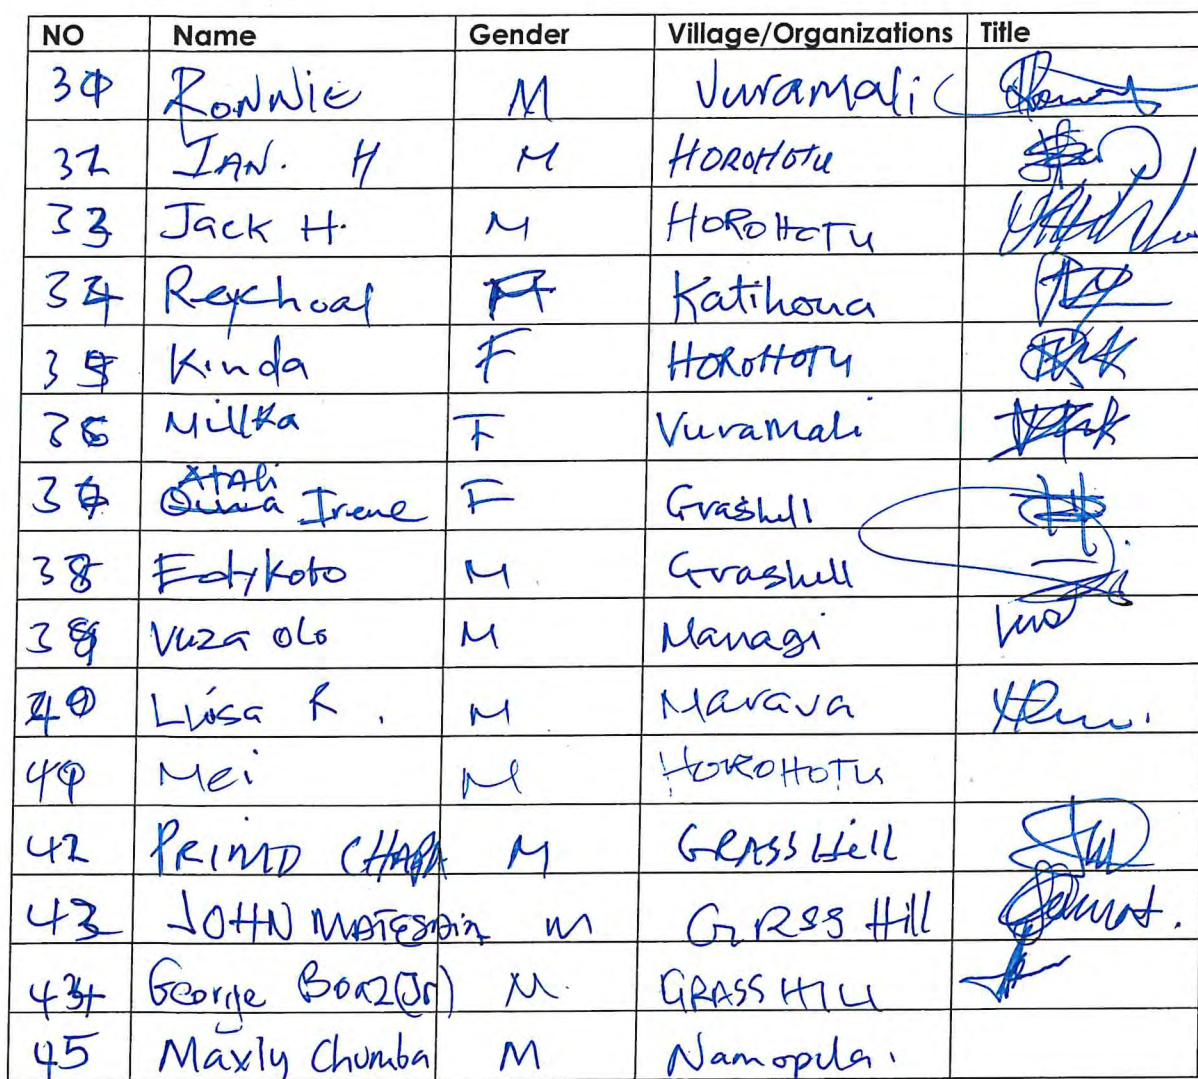 NO Name Gender Village/Organizations Title
Ronnie M Vuramali
32 IAN. H M HOROHOTU
33 Jack H. M HOROHOTU
34 Reychoal Katihona
35 Kinda F HOROHOTU
36 Millka F Vuramali
Atali
Irene F Grashill
38 Edykoto M. Grashill
39 Vuza olo M Managi
40 R. M Marava
Mei M HOROHOTU
42 PRIMO CHAPA M GRASS Hill
43 JOHN M GRSS Hill
44 George Boaz(Jr) M. GRASS HILL
45 Maxly Chumba M Namopila.